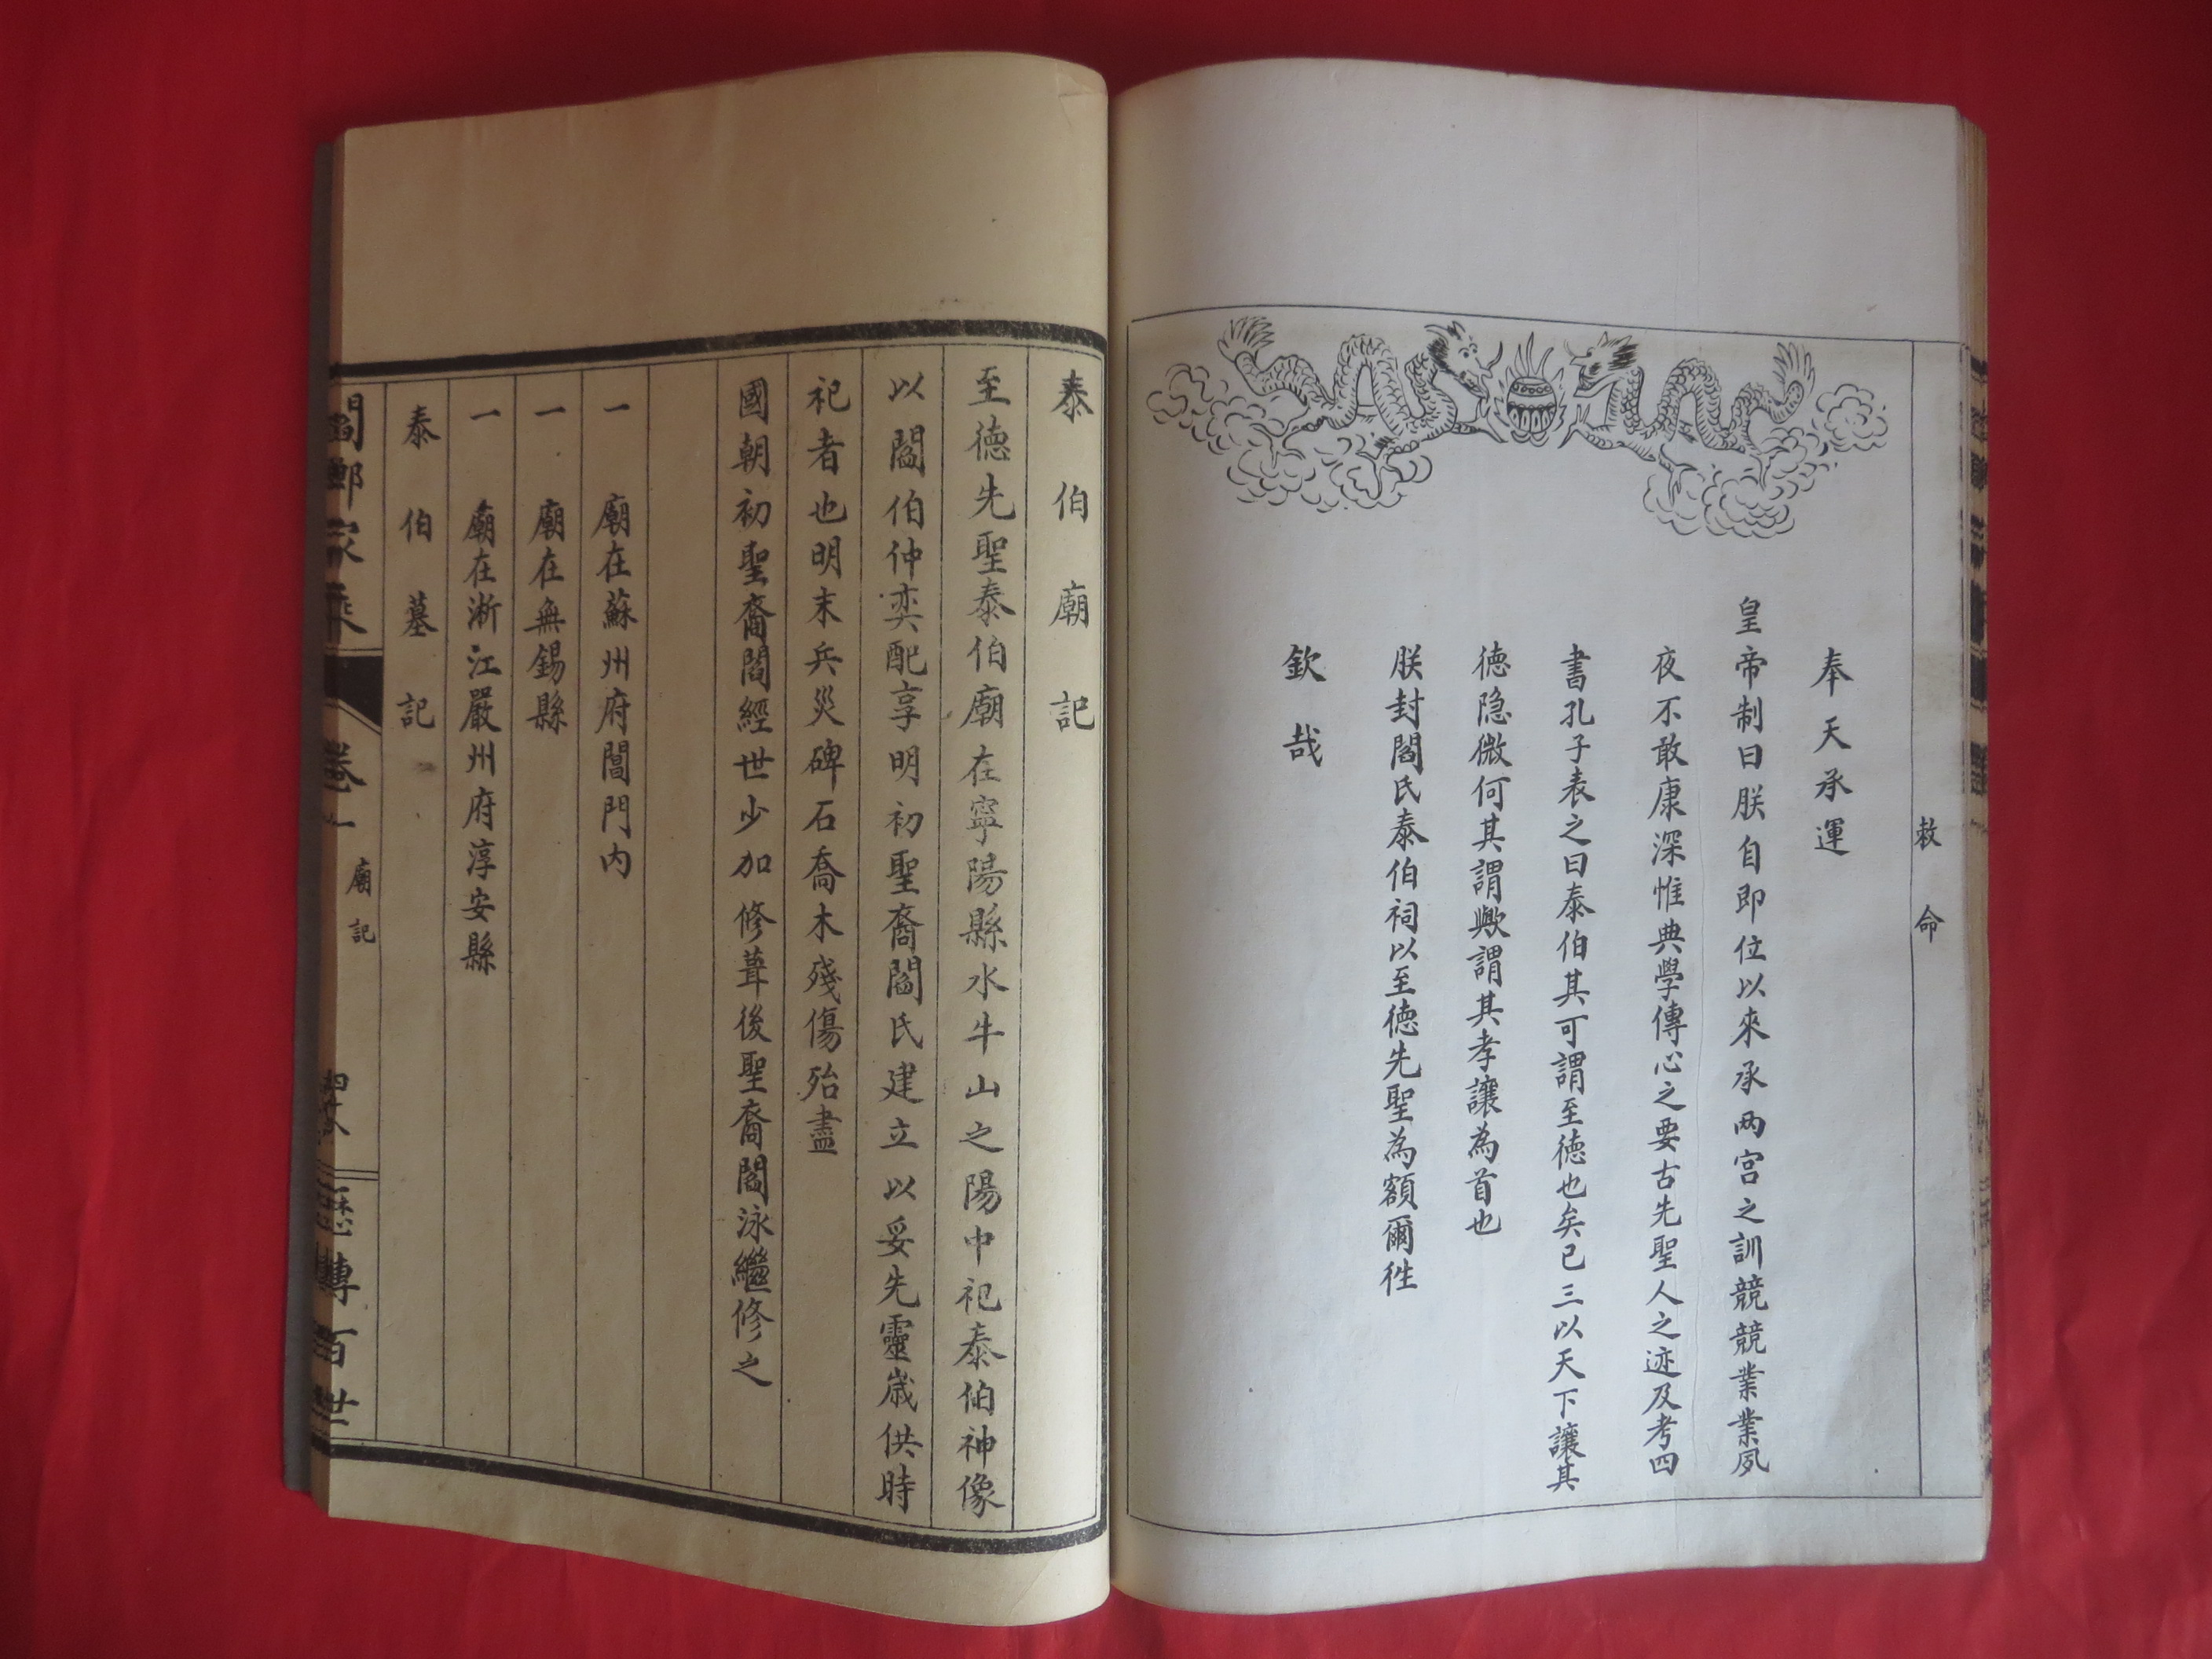 敕命
奉天承運
皇帝制曰朕自即位以來承两宫之訓競競業業夙
夜不敢康深惟典學傳心之要古先聖人之迹及考四
書孔子表之曰泰伯其可謂至德也矣已三以天下讓其
德隐微何其謂歟謂其孝讓為首也
朕封閻氏泰伯祠以至德先聖為額爾徃
欽哉
泰伯廟記
至德先聖泰伯廟在寧陽縣水牛山之陽中祀泰伯神像
以閻伯仲奕配享明初聖裔閻氏建立以妥先靈歲供時
祀者也明末兵災碑石喬木殘傷殆盡
國朝初聖裔閻經世少加修葺後聖裔閻泳繼修之
一 廟在蘇州府閶門内
一 廟在無錫縣
一 廟在淅江嚴州府淳安縣
泰伯墓記
卷一 廟記
傳百世